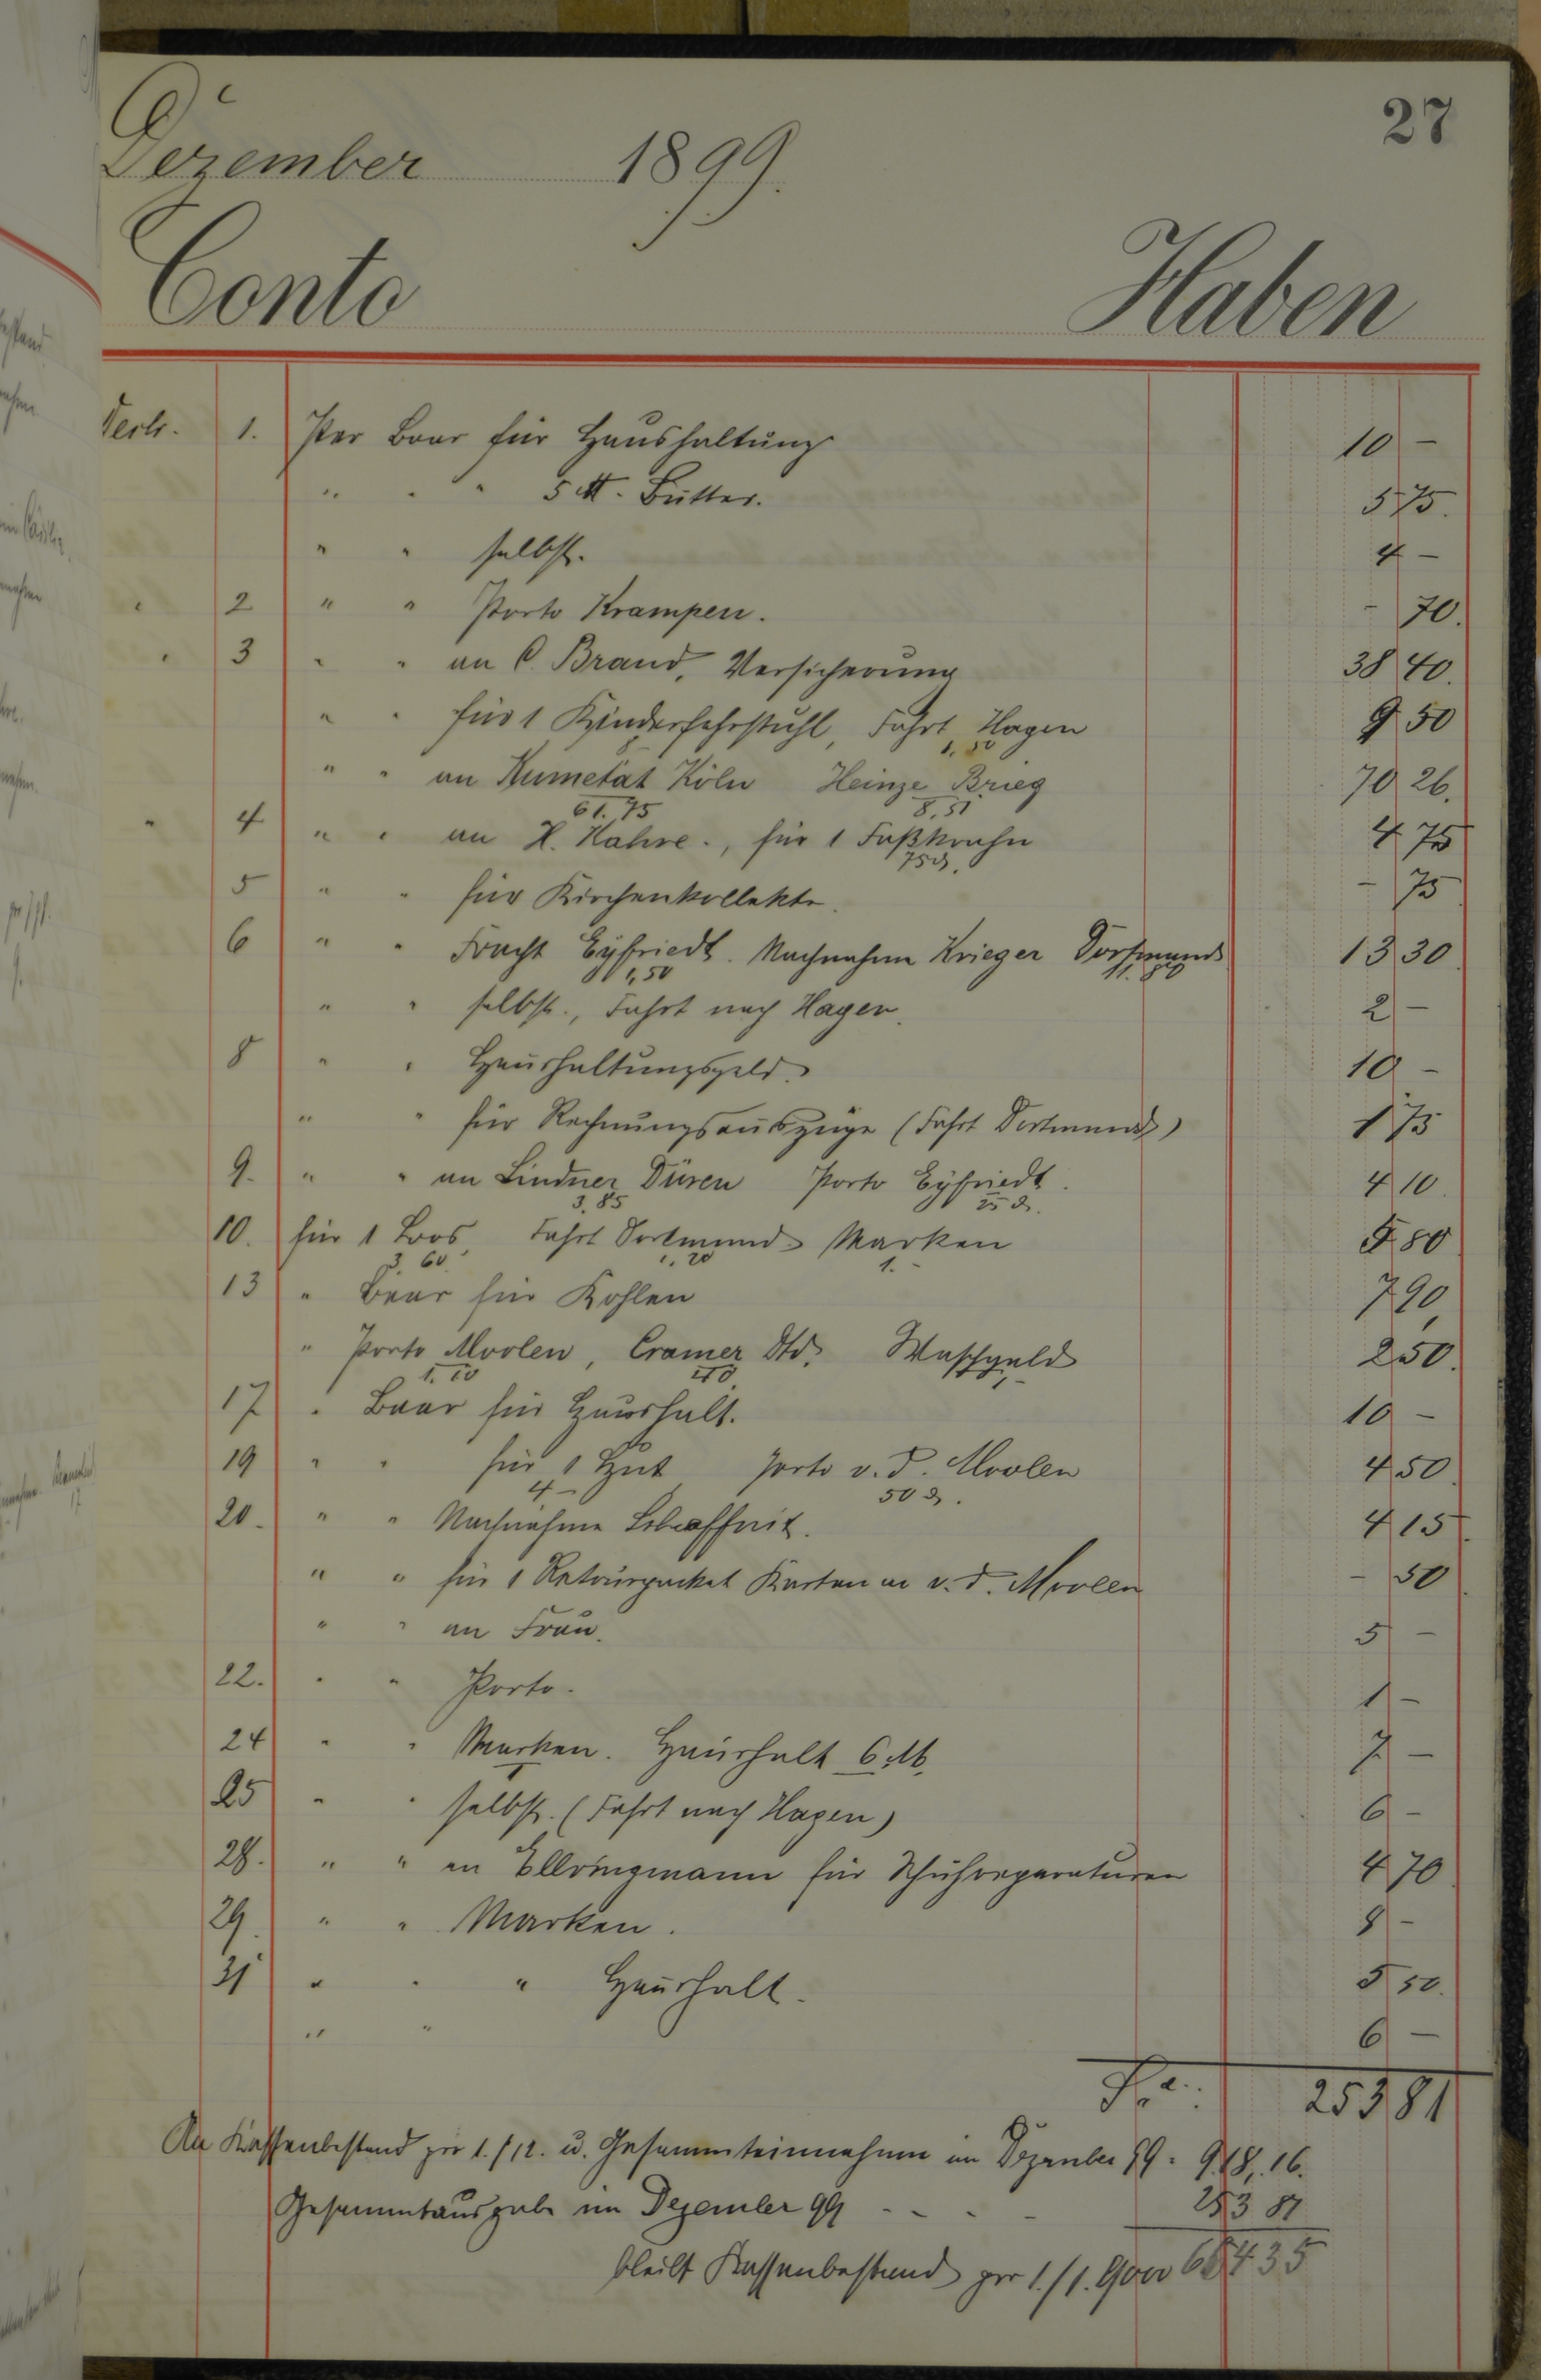 27
Dezember 1899.
Conto Haben
Decbr. 1. Per Baar für Haushaltung 10 -
" " " 5 ℔. Butter. 5 75.
" " selbst. 4 -
" 2 " " Porto Krampen. - 70.
" 3 " " an C. Brand, Versicherung 38 40.
" " für 1 Kinderfahrstuhl, Fahrt Hagen 9 50
1,50
" " an Kumetat Köln Heinze Brieg 70 26.
61.75 8,51
" 4 " " an H. Hahne., für 1 Faßkrahn 4 75
75 ₰.
5 " " für Kirchenkollekte. - 75
6 " " Fracht Eyfriedt. Nachnahme Krieger Dortmund 13 30
1,50 11.80
" " selbst., Fahrt nach Hagen. 2 -
8 " " Haushaltungsgeld. 10 -
" " für Rechnungsauszüge (Fahrt Dortmund) 1 75
9. " " an Lindner Düren Porto Eyfriedt. 4 10.
3,85 25 ₰.
10. für 1 Loos Fahrt Dortmund Marken 5 80
3.60 1,20 1.-
13 " Baar für Kohlen 7 90
" Porto Moolen, Cramer Dtd. Waschgeld 2 50.
1.10 40 1,-
17 " Baar für Haushalt. 10 -
19 " " für 1 Hut Porto v. d. Moolen 4 50.
4 - 50 ₰.
20. " " Nachnahme 4 15.
" " für 1 Retourpacket Karten an v. d. Moolen - 50
" " an Frau. 5 -
22. " " Porto. 1 -
24 " " Marken. Haushalt 6 M. 7 -
25 " " selbst. (Fahrt nach Hagen) 6 -
28. " " an Ellringmann für Schuhreparaturen 4 70
29. " " Marken. 8 -
31 " " " Haushalt. 5 50.
" " 6 -
253 81
An Kassenbestand per 1./12. u. Gesammteinnahme im Dezember 99. 918,16.
Gesammtausgabe im Dezember 99 - - - - 253 81
bleibt Kassenbestand per 1./1. 1900 664 35